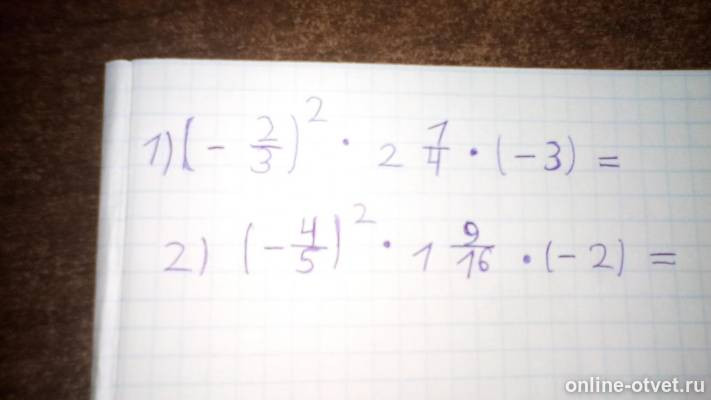 1) (- 2/3)² · 2 1/4 · (-3) =
2) (- 4/5)² · 1 9/16 · (-2) =
online-otvet.ru